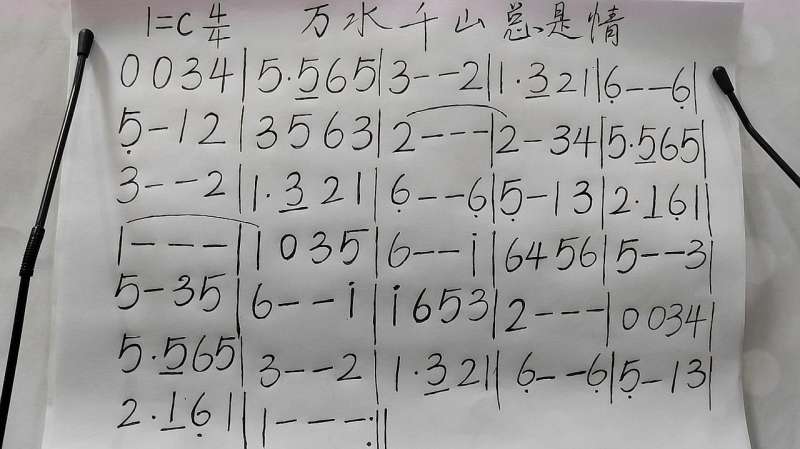 1=C 4/4 万水千山总是情
0 0 3 4 | 5·5̲ 6 5 | 3 - - 2 | 1·3̲ 2 1 | 6̣ - - 6̣ |
5̣ - 1 2 | 3 5 6 3 | 2 - - - | 2 - 3 4 | 5·5̲ 6 5 |
3 - - 2 | 1·3̲ 2 1 | 6̣ - - 6̣ | 5̣ - 1 3 | 2·1̲ 6̣ 1 |
1 - - - | 1 0 3 5 | 6 - - i | 6 4 5 6 | 5 - - 3 |
5 - 3 5 | 6 - - i | i 6 5 3 | 2 - - - | 0 0 3 4 |
5·5̲ 6 5 | 3 - - 2 | 1·3̲ 2 1 | 6̣ - - 6̣ | 5̣ - 1 3 |
2·1̲ 6̣ 1 | 1 - - - :||